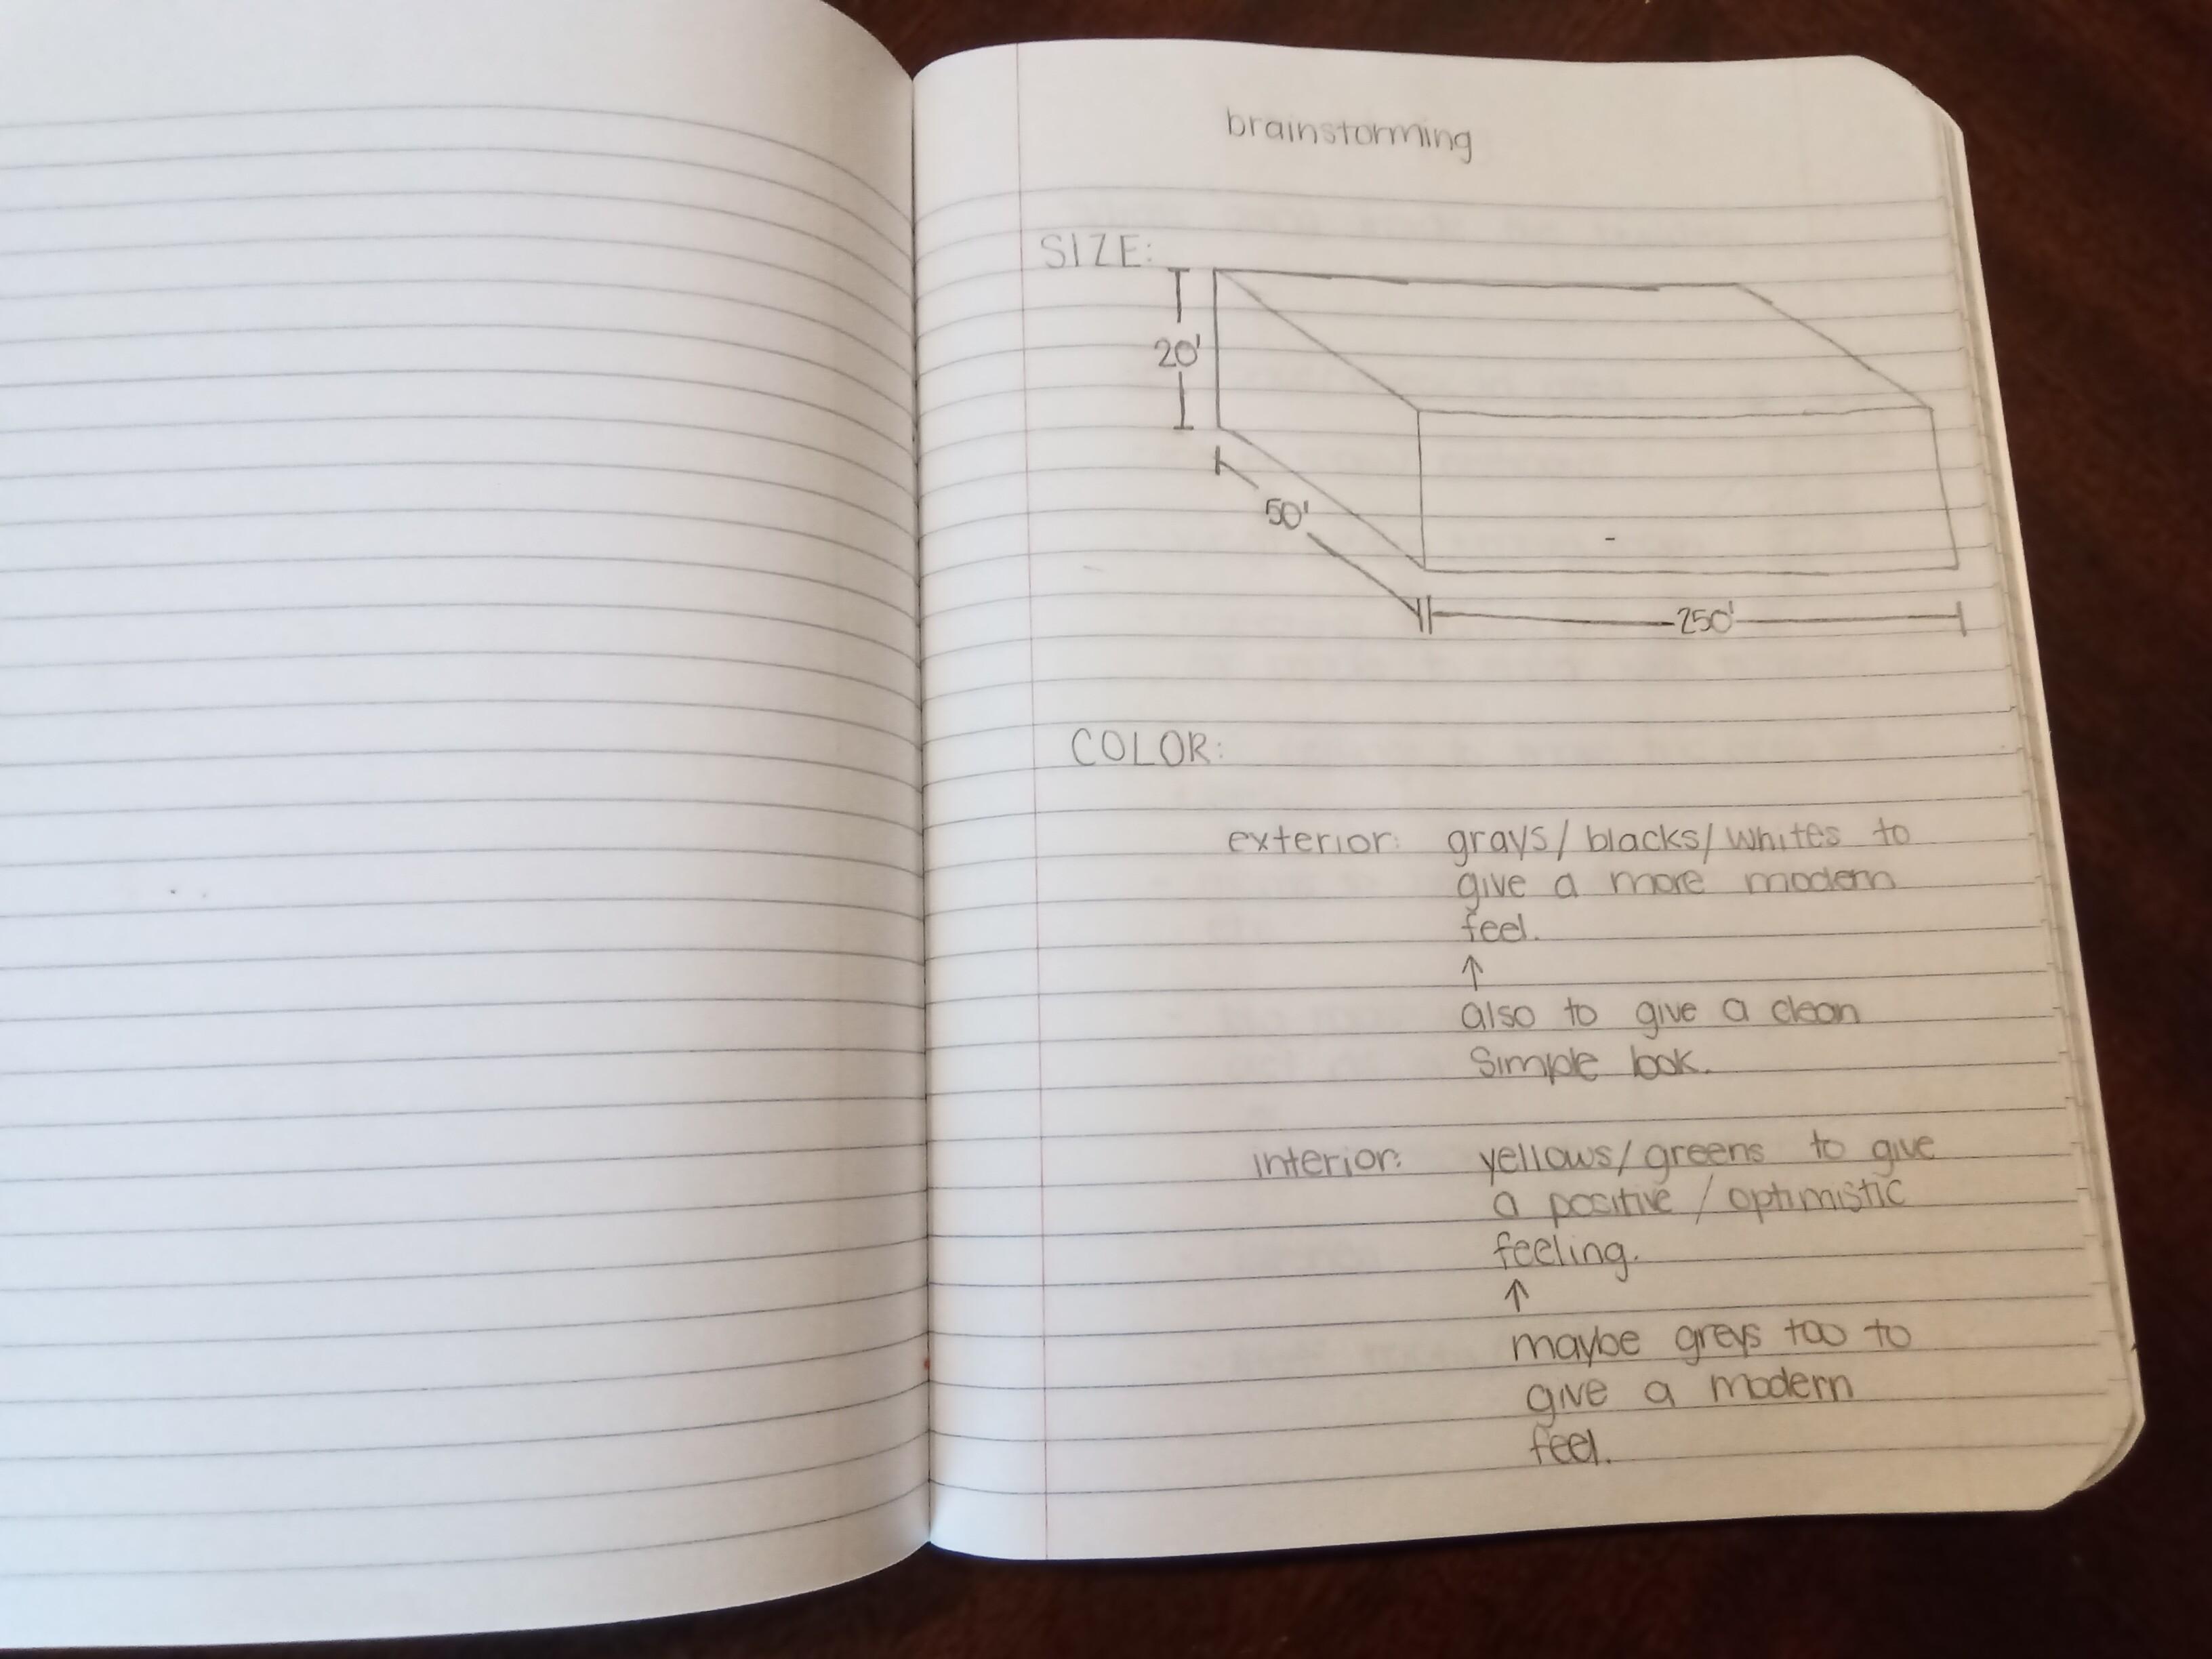 brainstorming
SIZE:
20'
50'
250'
COLOR:
exterior: grays/blacks/whites to
give a more modern
feel.
↑
also to give a clean
simple look.
interior: yellows/greens to give
a positive/optimistic
feeling.
↑
maybe greys too to
give a modern
feel.